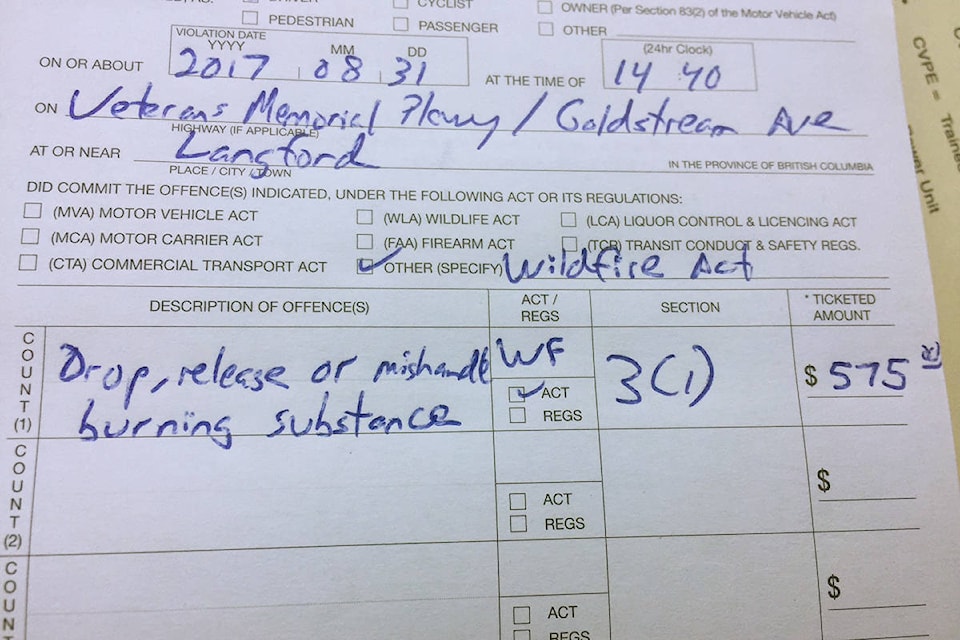 DRIVER
CYCLIST
OWNER (Per Section 83(2) of the Motor Vehicle Act)
PEDESTRIAN
PASSENGER
OTHER
VIOLATION DATE
YYYY MM DD
(24hr Clock)
ON OR ABOUT 2017 08 31 AT THE TIME OF 14 40
ON Veterans Memorial Pkwy / Goldstream Ave
HIGHWAY (IF APPLICABLE)
AT OR NEAR Langford IN THE PROVINCE OF BRITISH COLUMBIA
PLACE / CITY / TOWN
DID COMMIT THE OFFENCE(S) INDICATED, UNDER THE FOLLOWING ACT OR ITS REGULATIONS:
(MVA) MOTOR VEHICLE ACT (WLA) WILDLIFE ACT (LCA) LIQUOR CONTROL & LICENCING ACT
(MCA) MOTOR CARRIER ACT (FAA) FIREARM ACT (TCR) TRANSIT CONDUCT & SAFETY REGS.
(CTA) COMMERCIAL TRANSPORT ACT OTHER (SPECIFY) Wildfire Act
DESCRIPTION OF OFFENCE(S) ACT / REGS SECTION * TICKETED AMOUNT
COUNT (1) Drop, release or mishandle WF 3(1) $ 575
burning substance
ACT
REGS
COUNT (2) $
ACT
REGS
COUNT $
ACT
REGS
CVPE = Traine
Unit